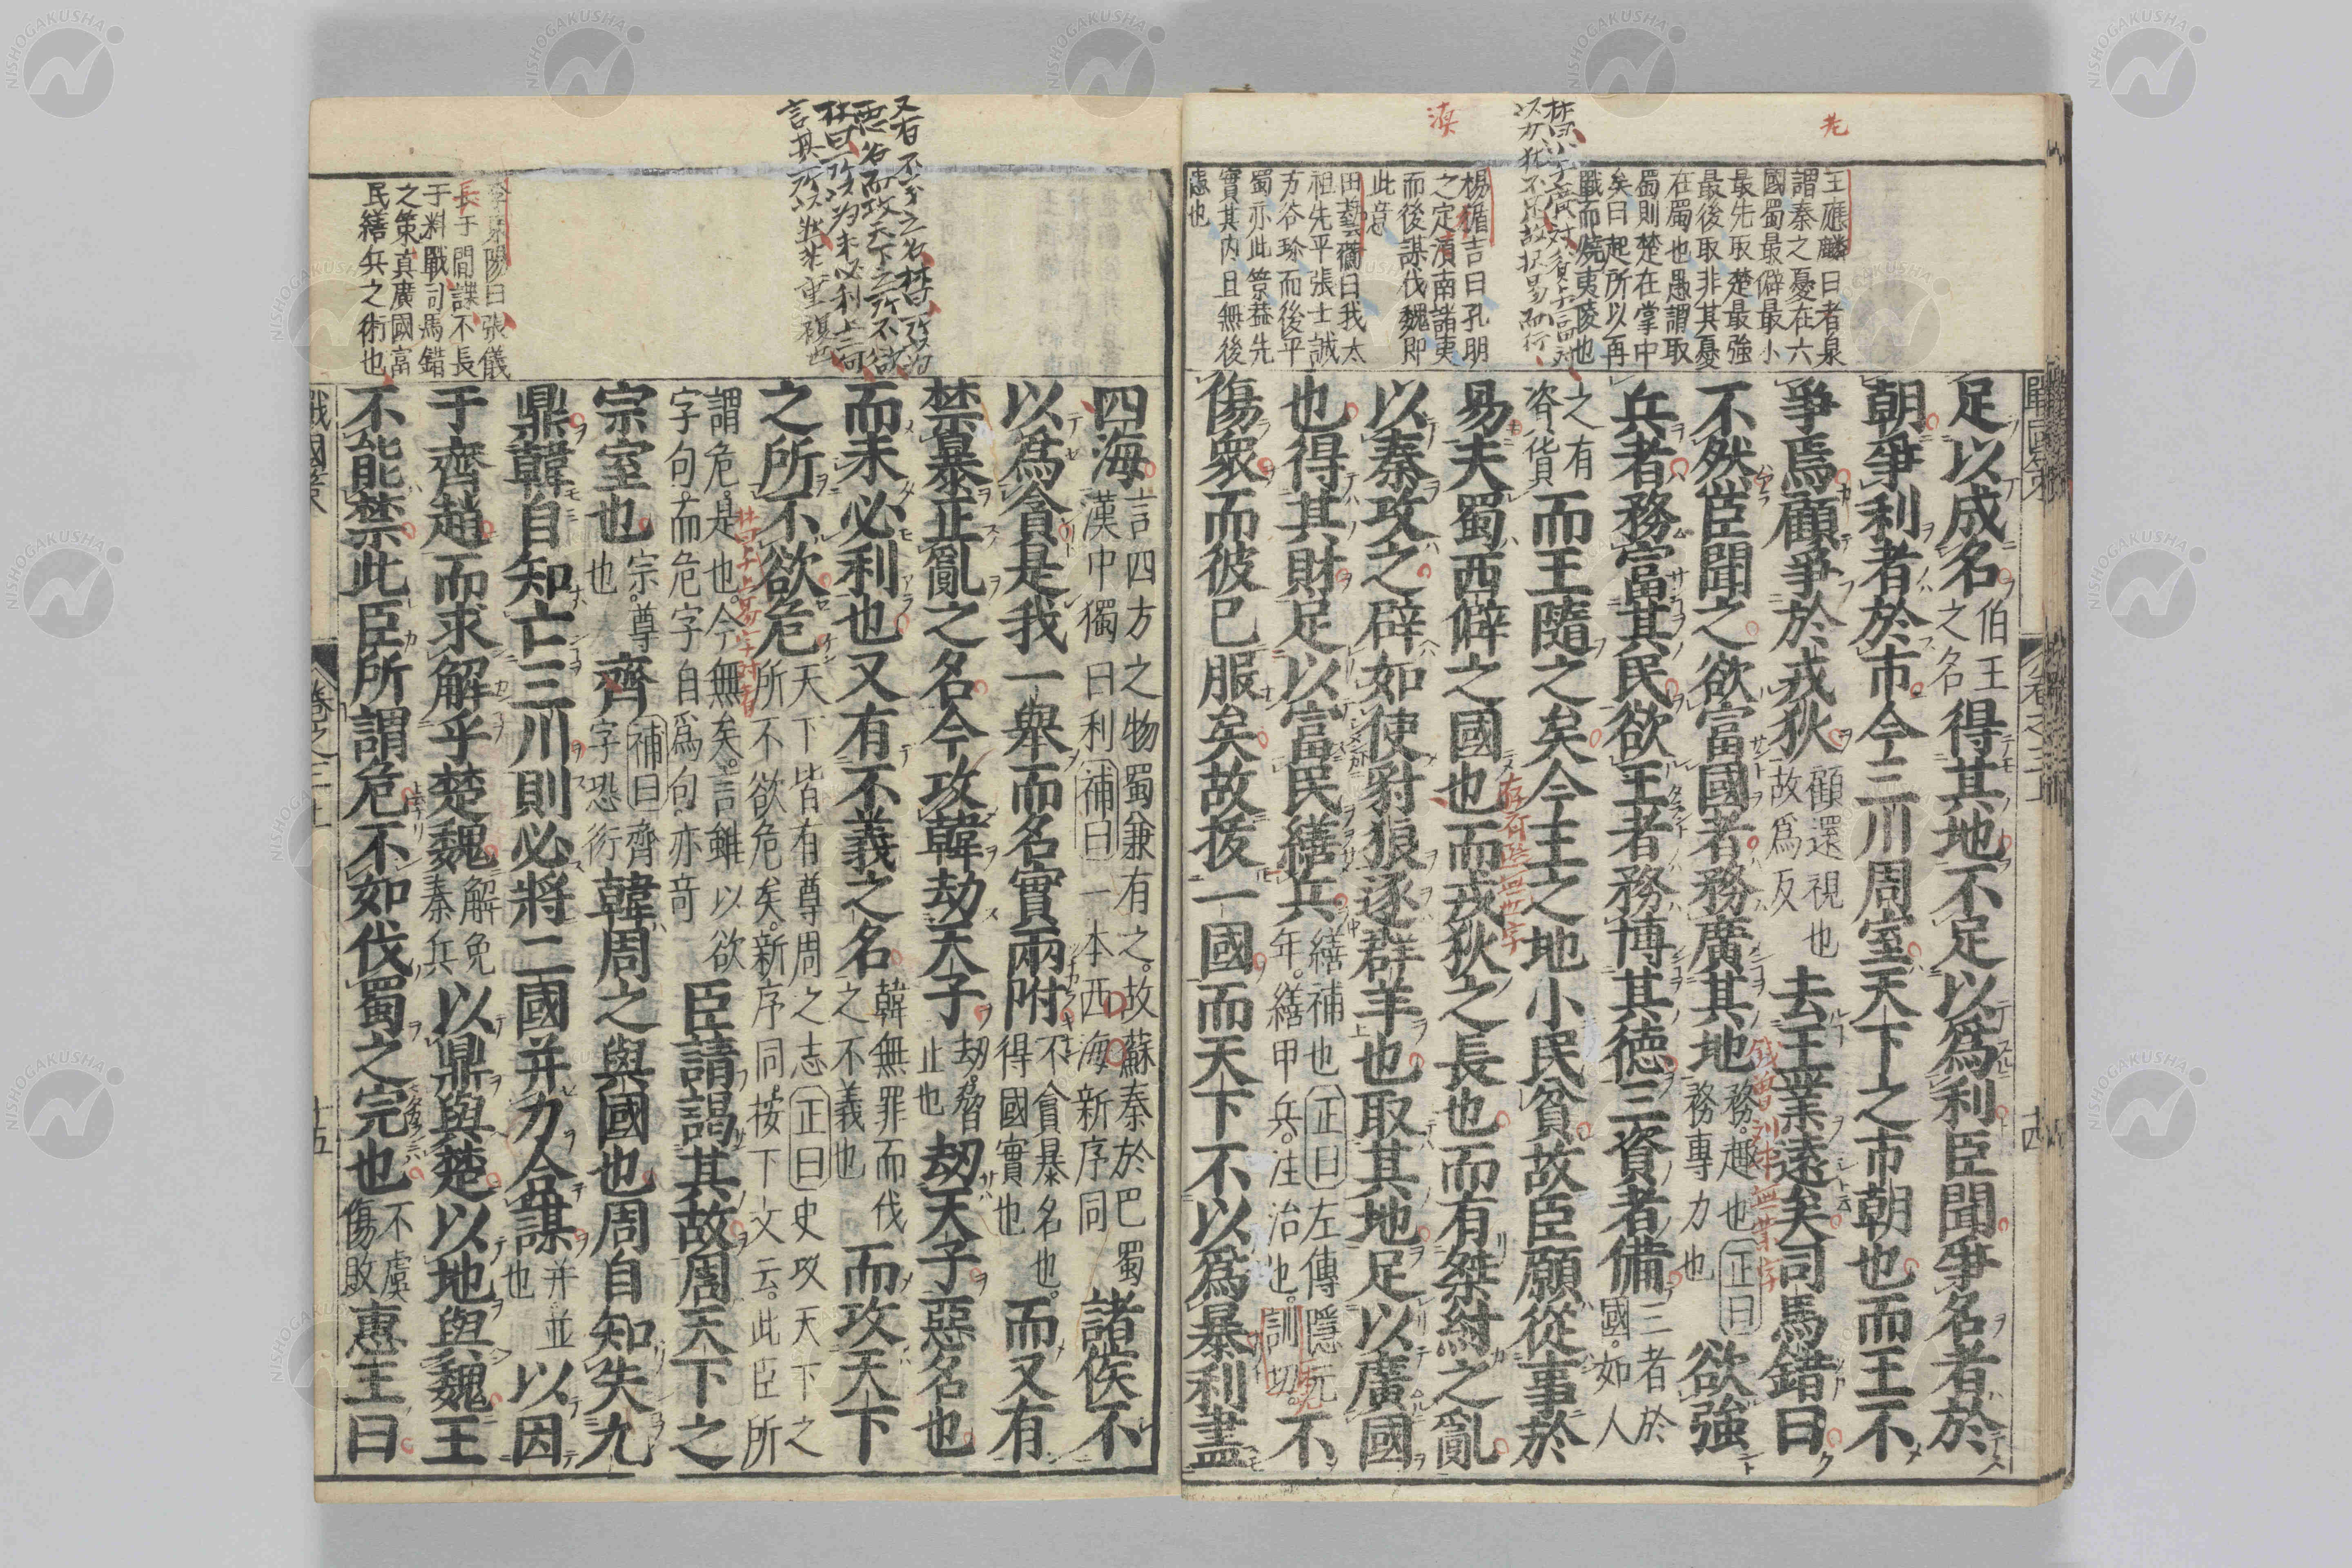 王應麟曰者泉
謂秦之憂在六
國蜀最僻最小
最先取楚最強
最後取非其憂
在蜀也愚謂取
蜀則楚在掌中
矣曰起所以再
戰而燒夷陵也
楊循吉曰孔明
之定滇南諸夷
而後謀伐魏即
此意
田藝蘅曰我太
祖先平張士誠
方谷珍而後平
蜀亦此策葢先
實其內且無後
慮也
足以成名
伯王
之名
得其地不足以爲利臣聞爭名者於
朝爭利者於市今三川周室天下之市朝也而王不
爭焉顧爭於戎狄
顧還視也
故爲反
去王業遠矣司馬錯曰
不然臣聞之欲富國者務廣其地
務趣也正曰
務專力也
欲強
兵者務富其民欲王者務博其德三資者備
三者於
國如人
之有
資貨
而王隨之矣今王之地小民貧故臣願從事於
易夫蜀西僻之國也而戎狄之長也而有桀紂之亂
以秦攻之辟如使豺狼逐群羊也取其地足以廣國
也得其財足以富民繕兵
繕補也正曰左傳隱元
年繕甲兵注治也訓切
不
傷衆而彼已服矣故拔一國而天下不以爲暴利盡
四海
言四方之物蜀兼有之故蘇秦於巴蜀
漢中獨曰利補曰一本西海新序同
諸侯不
以爲貪是我一舉而名實兩附
不貪暴名也
得國實也
而又有
禁暴正亂之名今攻韓劫天子
劫脅
止也
劫天子惡名也
而未必利也又有不義之名
韓無罪而伐
之不義也
而攻天下
之所不欲危
天下皆有尊周之志正曰史攻天下之
所不欲危矣新序同按下文云此臣所
謂危是也今無矣言雖以欲
字句而危字自爲句亦奇
臣請謁其故周天下之
宗室也
宗尊
也
齊
補曰齊
字恐衍
韓周之與國也周自知失九
鼎韓自知亡三川則必將二國并力合謀
并並
也
以因
于齊趙而求解乎楚魏
解免
秦兵
以鼎與楚以地與魏王
不能禁此臣所謂危不如伐蜀之完也
不虞
傷敗
惠王曰
李泉陽曰張儀
長于間諜不長
于料戰司馬錯
之策真廣國富
民繕兵之術也
戰國策
卷之三上
十五
NISHOGAKUSHA